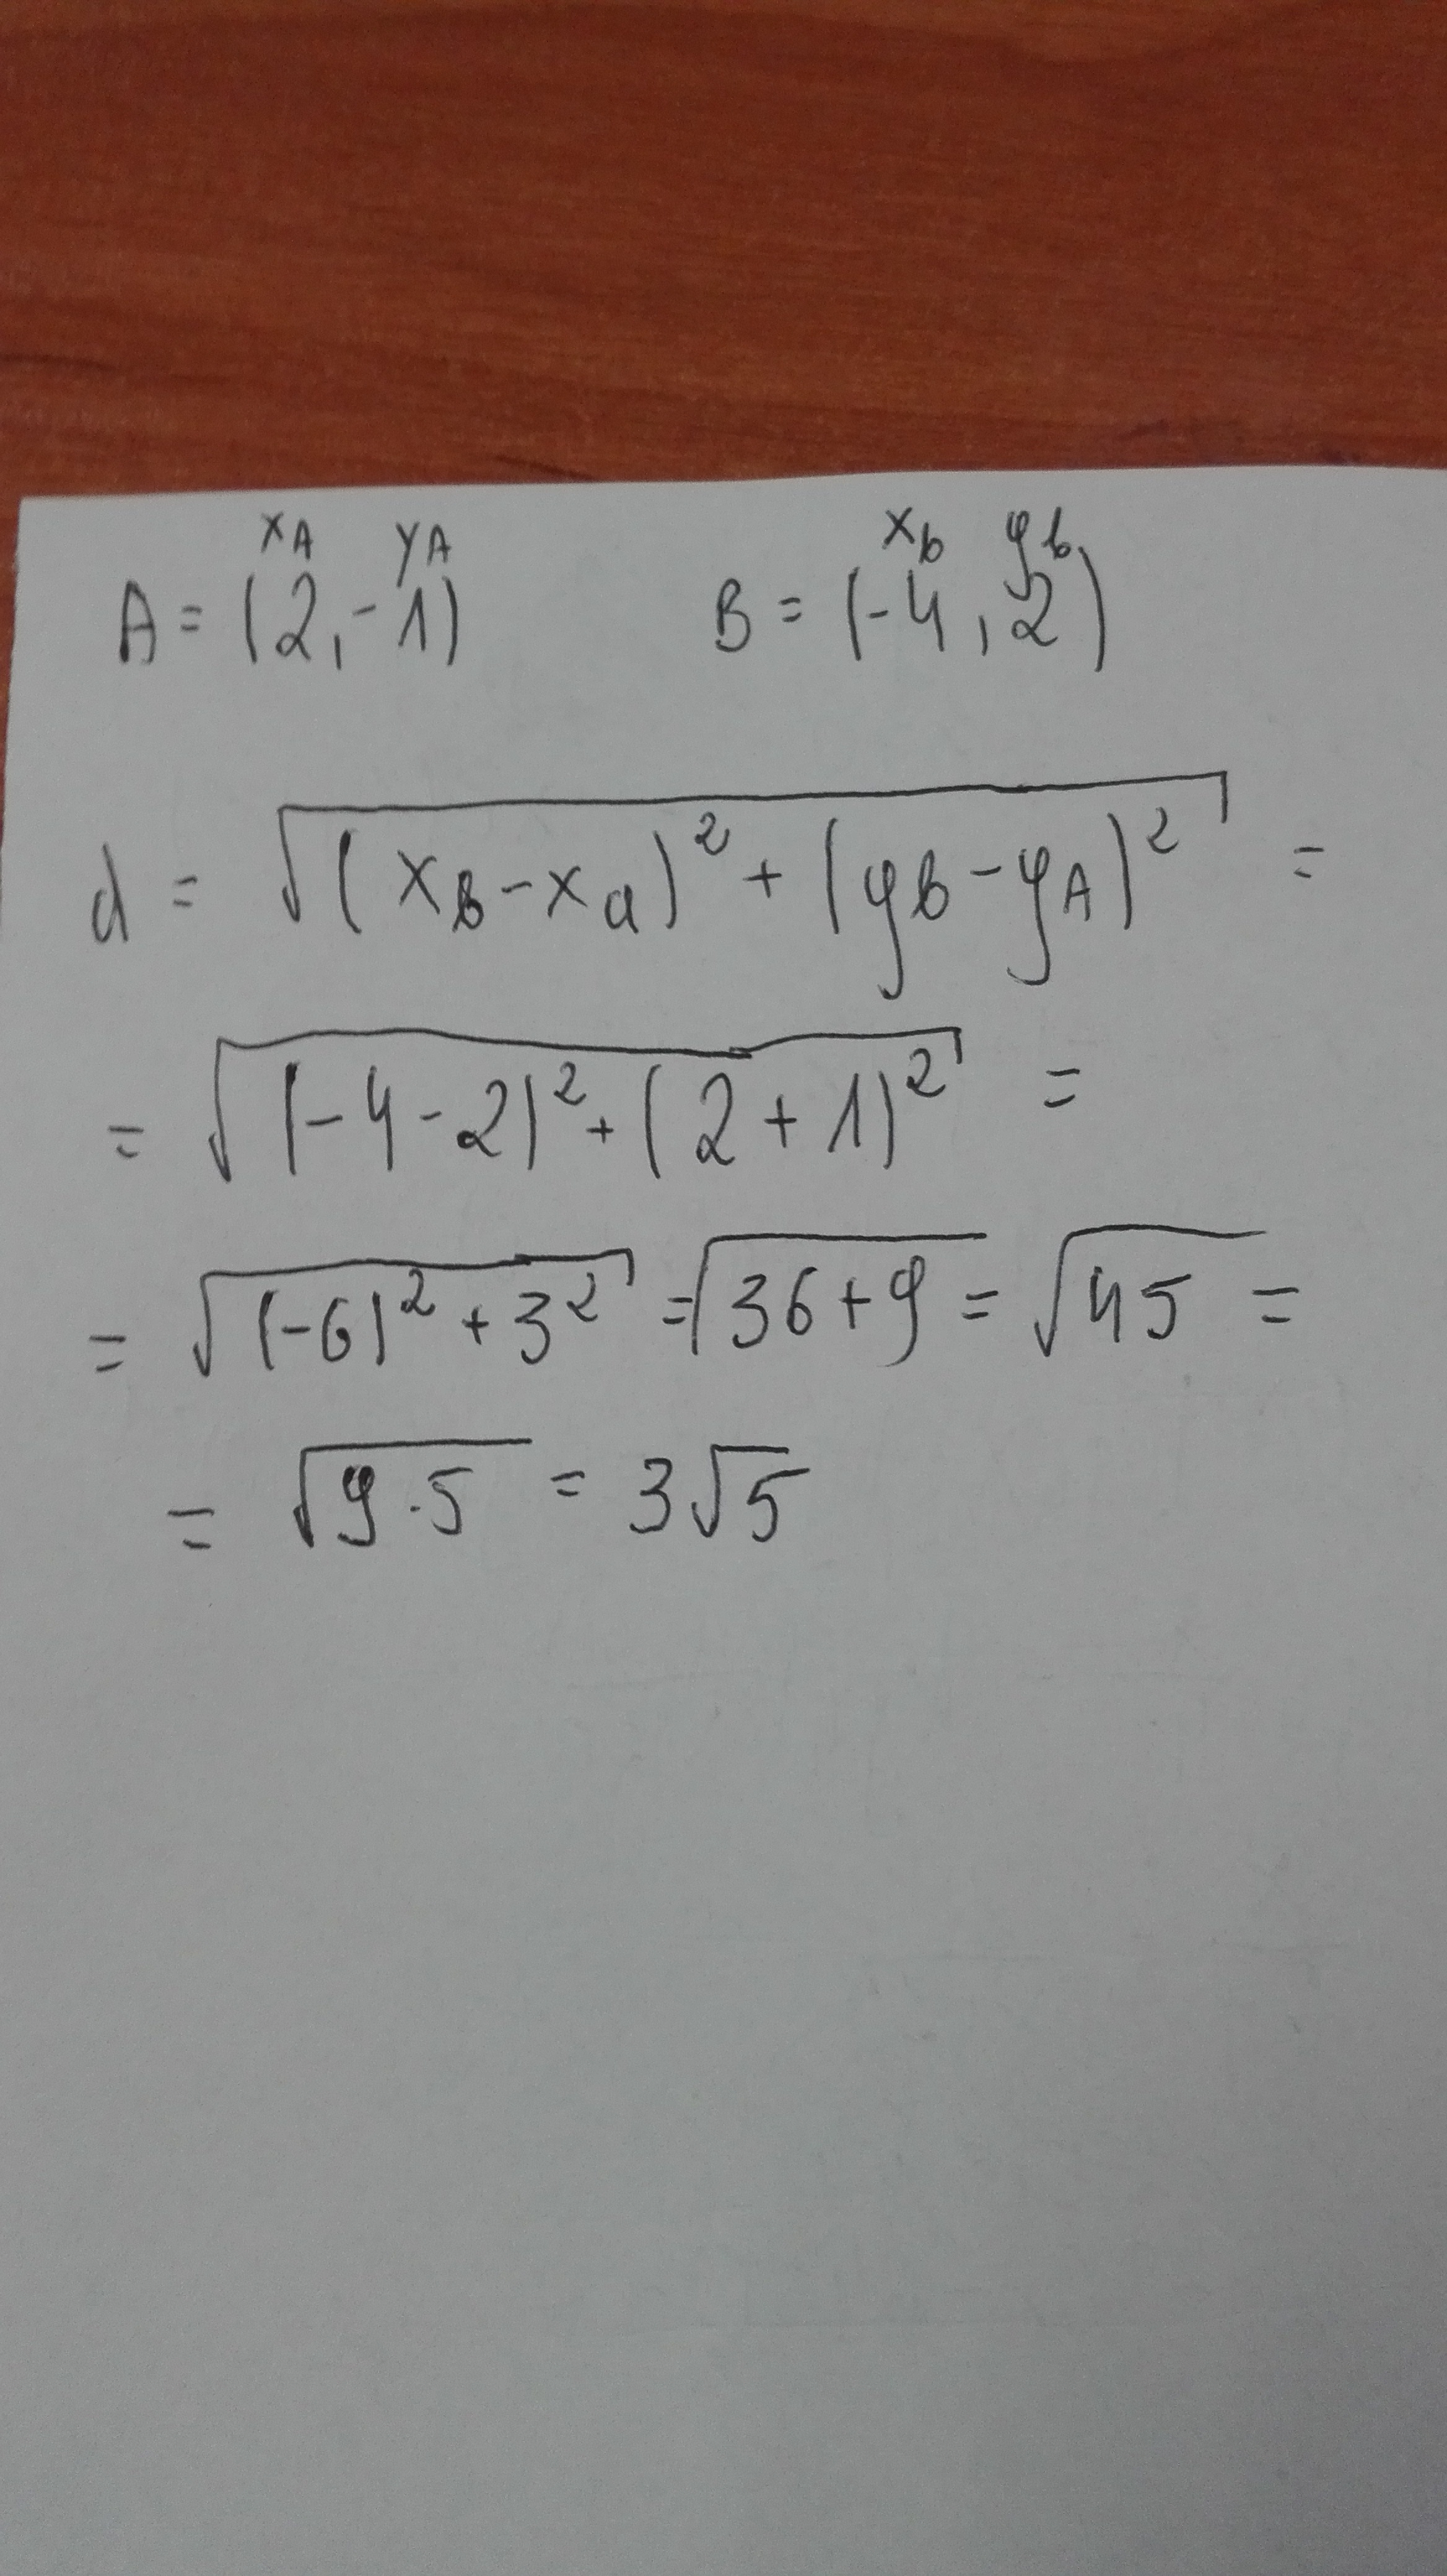 x_A y_A x_b y_b
A = (2, -1) B = (-4, 2)
d = √((x_B - x_a)² + (y_B - y_A)²) =
= √((-4 - 2)² + (2 + 1)²) =
= √((-6)² + 3²) = √(36 + 9) = √45 =
= √(9 · 5) = 3√5